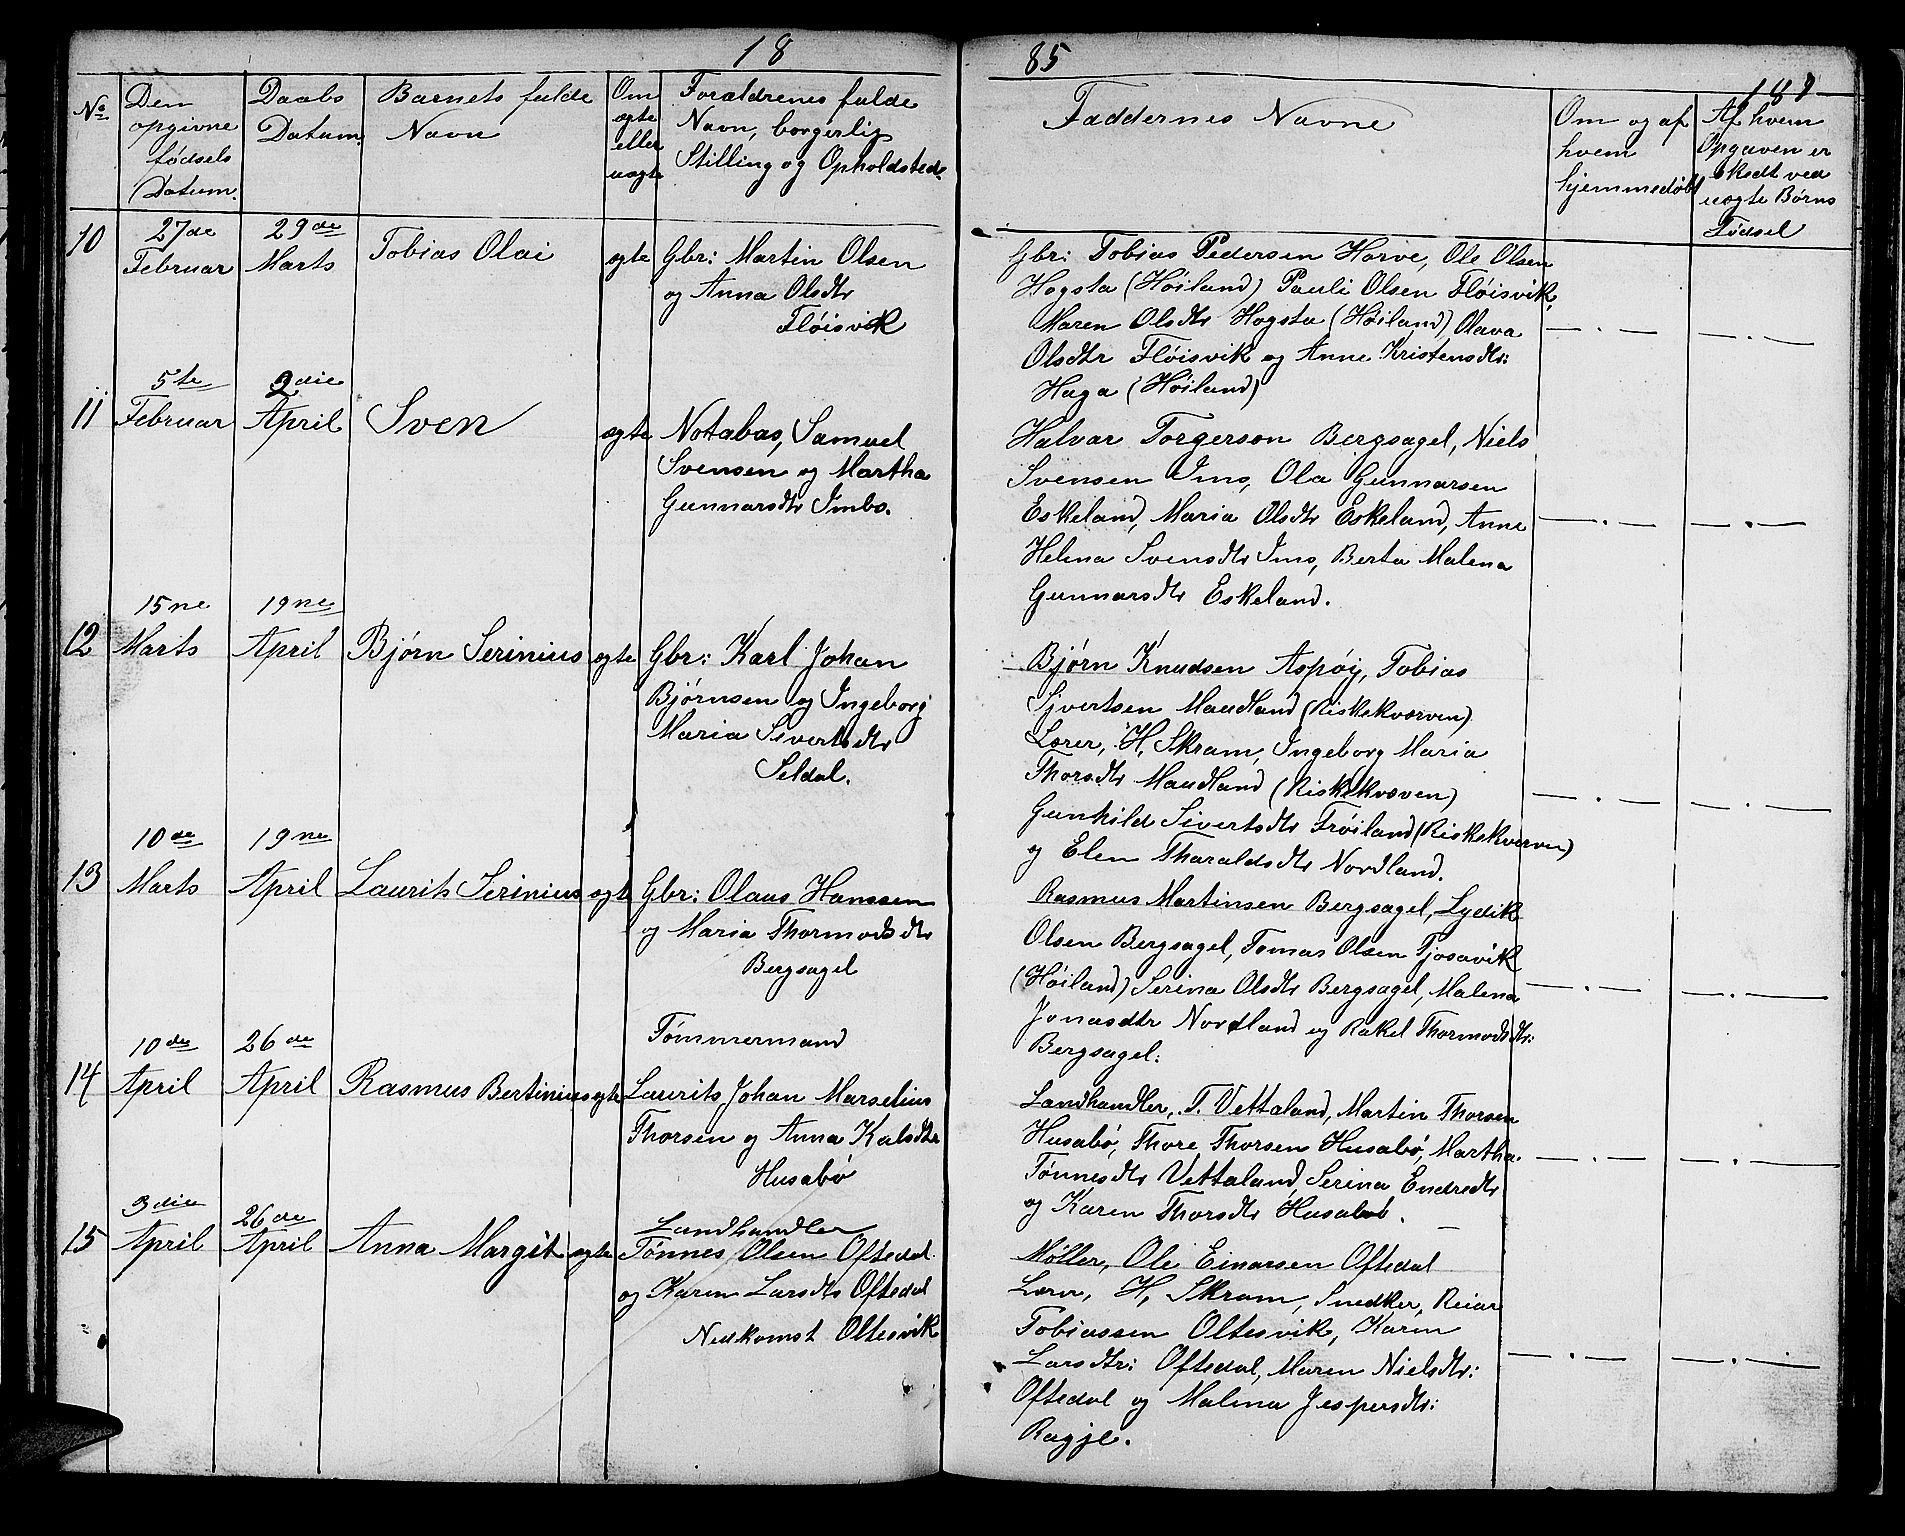 18
85
187
No
Den opgivne fødsels Datum.
Daabs Datum.
Barnets fulde Navn
Om ægte eller uægte
Forældrenes fulde Navn, borgerlig Stilling og Opholdsted.
Faddernes Navne
Om og af hvem hjemmedøbt
Af hvem Opgaven er skedt ved uægte Børns Fødsel
10
27de Februar
29de Marts
Tobias Olai
ægte
Gbr: Martin Olsen
og Anna Olsdtr
Fløisvik
Gbr: Tobias Pedersen Horve, Ole Olsen
Hogsta (Høiland) Pauli Olsen Fløisvik,
Maren Olsdtr Hogsta (Høiland) Olava
Olsdtr Fløisvik og Anne Kristensdtr:
Haga (Høiland)
— . —
— . —
11
5te Februar
2die April
Sven
ægte
Notabas, Samuel
Svensen og Martha
Gunnarsdtr Imbs.
Halvar Torgerson Bergsagel, Niels
Svensen Ims, Ola Gunnarsen
Eskeland, Maria Olsdtr Eskeland, Anne
Helina Svensdtr Ims, Berta Malena
Gunnarsdtr Eskeland.
— . —
— . —
12
15ne Marts
19ne April
Bjørn Serinius
ægte
Gbr: Karl Johan
Bjørnsen og Ingeborg
Maria Sivertsdtr
Seldal.
Bjørn Knudsen Aspøy, Tobias
Sjvertsen Maudland (Riskekværven)
Lærer, H, Skram, Ingeborg Maria
Thorsdtr Maudland (Riskekvæven)
Gunhild Sivertsdtr Frøiland (Riskekværven)
og Elen Tharaldsdtr Nordland.
— . —
— . —
13
10de Marts
19ne April
Laurits Serinius
ægte
Gbr: Olaus Hanssen
og Maria Thormodsdtr
Bergsagel
Rasmus Martinsen Bergsagel, Lydik
Olsen Bergsagel, Tomas Olsen Tjosavik
(Høiland) Serina Olsdtr Bergsagel, Malena
Jonasdtr Nordland og Rakel Thormodsdtr:
Bergsagel:
— . —
— . —
14
10de April
26de April
Rasmus Bertinius
ægte
Tømmermand
Laurits Johan Marselius
Thorsen og Anna Kalsdtr
Husabø
Landhandler, T. Vettaland, Martin Thorsen
Husabø, Thore Thorsen Husabø, Martha
Tønnesdtr Vettaland, Serina Endredtr
og Karen Thorsdtr Husabø.
— . —
— . —
15
3die April
26de April
Anna Margit
ægte
Landhandler
Tønnes Olsen Oftedal
og Karen Larsdtr Oftedal
Nedkomst Oltesvik
Møller, Ole Einarsen Oftedal
Lærer, H, Skram, Snedker, Reiar
Tobiassen Oltesvik, Karen
Larsdtr: Oftedal, Maren Nielsdtr:
Oftedal og Malina Jespersdtr:
Ragje.
— . —
— . —